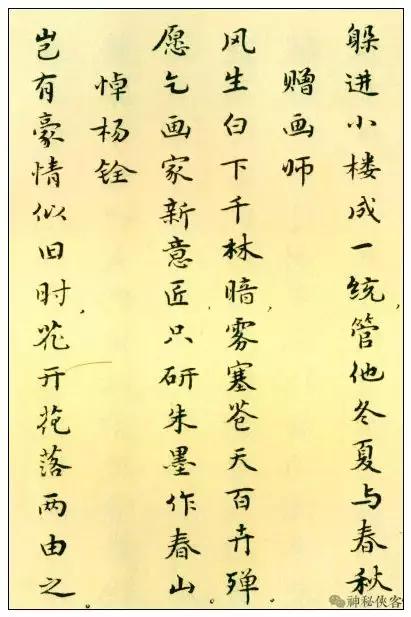 躲进小楼成一统，管他冬夏与春秋。
赠画师
风生白下千林暗，雾塞苍天百卉殚。
愿乞画家新意匠，只研朱墨作春山。
悼杨铨
岂有豪情似旧时，花开花落两由之。
神秘侠客